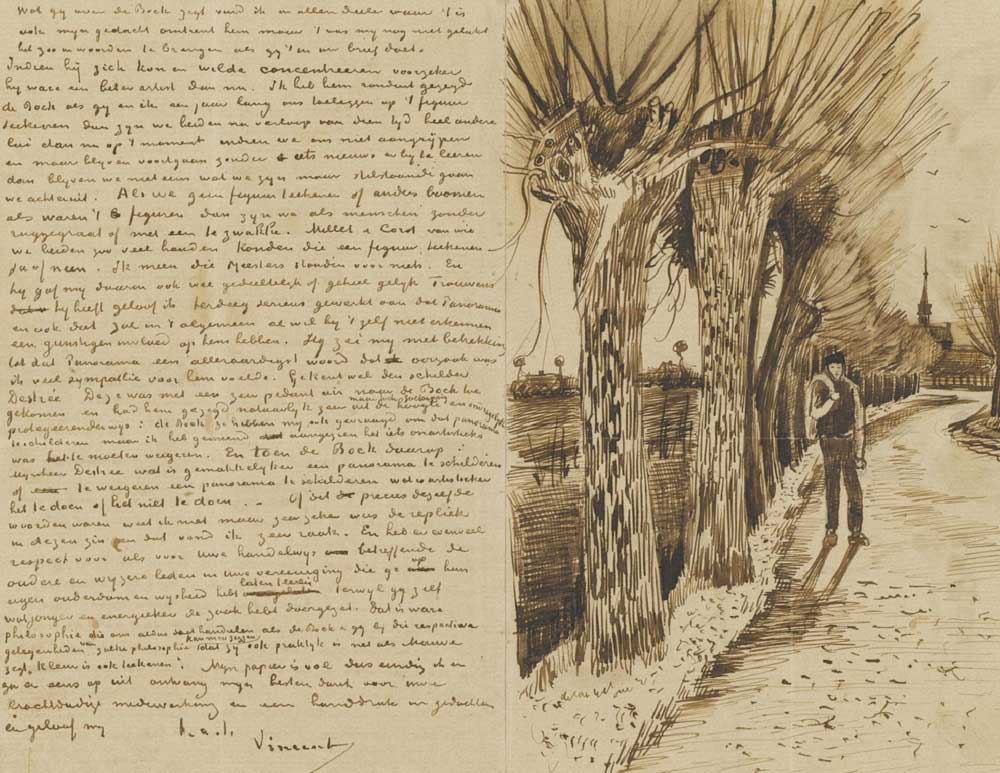 Wat gy over de Bock zegt vind ik in allen deele waar 't is
ook myn gedacht omtrent hem maar 't was my nog niet gelukt
het zoo in woorden te brengen als gy 't in uw brief doet.
Indien hij zich kon en wilde concentreeren voorzeker
hy ware een beter artist dan nu. Ik heb hem ronduit gezegd
de Bock als gy en ik een jaar lang ons toeleggen op 't figuur
teekenen dan zyn we beiden na verloop van dien tyd heel andere
lui dan nu op 't moment indien we ons niet aangrypen
en maar blyven voortgaan zonder iets nieuws er by te leeren
dan blyven we niet eens wat we zyn maar stilstaande gaan
we achteruit. Als we geen figuren teekenen of andes boomen
als waren 't figuren dan zyn we als menschen zonder
ruggegraat of met een te zwakke. Millet & Corot van wie
we beiden zoo veel houden konden die een figuur teekenen
Ja of neen. Ik meen die Meesters stonden voor niets. En
hy gaf my daarin ook wel gedeeltelyk of geheel gelyk Trouwens
hy heeft geloof ik terdeeg serieus gewerkt aan dat Panorama
en ook dat zal in 't algemeen al wil hy 't zelf niet erkennen
een gunstigen invloed op hem hebben. Hy zei my met betrekking
tot dat Panorama een alleraardigst woord dat oorzaak was
ik veel sympathie voor hem voelde. Ge kent wel den schilder
Destrée Deze was met een zeer pedant air naar de Bock toe
gekomen en had hem gezegd natuurlyk zeer uit de hoogte en
protegeerenderwys: de Bock ze hebben my ook gevraagd om dat panorama
te schilderen maar ik heb gemeend aangezien het iets onartistieks
was te moeten weigeren. En toen de Bock daarop
Mynheer Destrée wat is gemakkelyker een panorama te schilderen
of te weigeren een panorama te schilderen wat is artistieker
het te doen of het niet te doen. Of dit precies dezelfde
woorden waren weet ik niet maar zeer zeker was de repliek
in dezen zin en dat vond ik zeer raak. En heb er evenveel
respect voor als voor uwe handelwys betreffende de
oudere en wyzere leden in uwe vereeniging die ge op hun
eigen ouderdom en wysheid hebt laten teren terwyl gy zelf
wat jonger en energieker de zaak hebt doorgezet. dat is ware
philosophie die ons doet handelen als de Bock & gy bij die respectieve
gelegenheden van zulke philosophie kan men zeggen dat zy ook praktyk is net als Mauve
zegt, Kleur is ook teekenen. Myn papier is vol dus eindig ik en
ga er eens op uit ontvang myn besten dank voor uwe
krachtdadige medewerking en een handdruk in gedachten
en geloof my
t. à. t.
Vincent